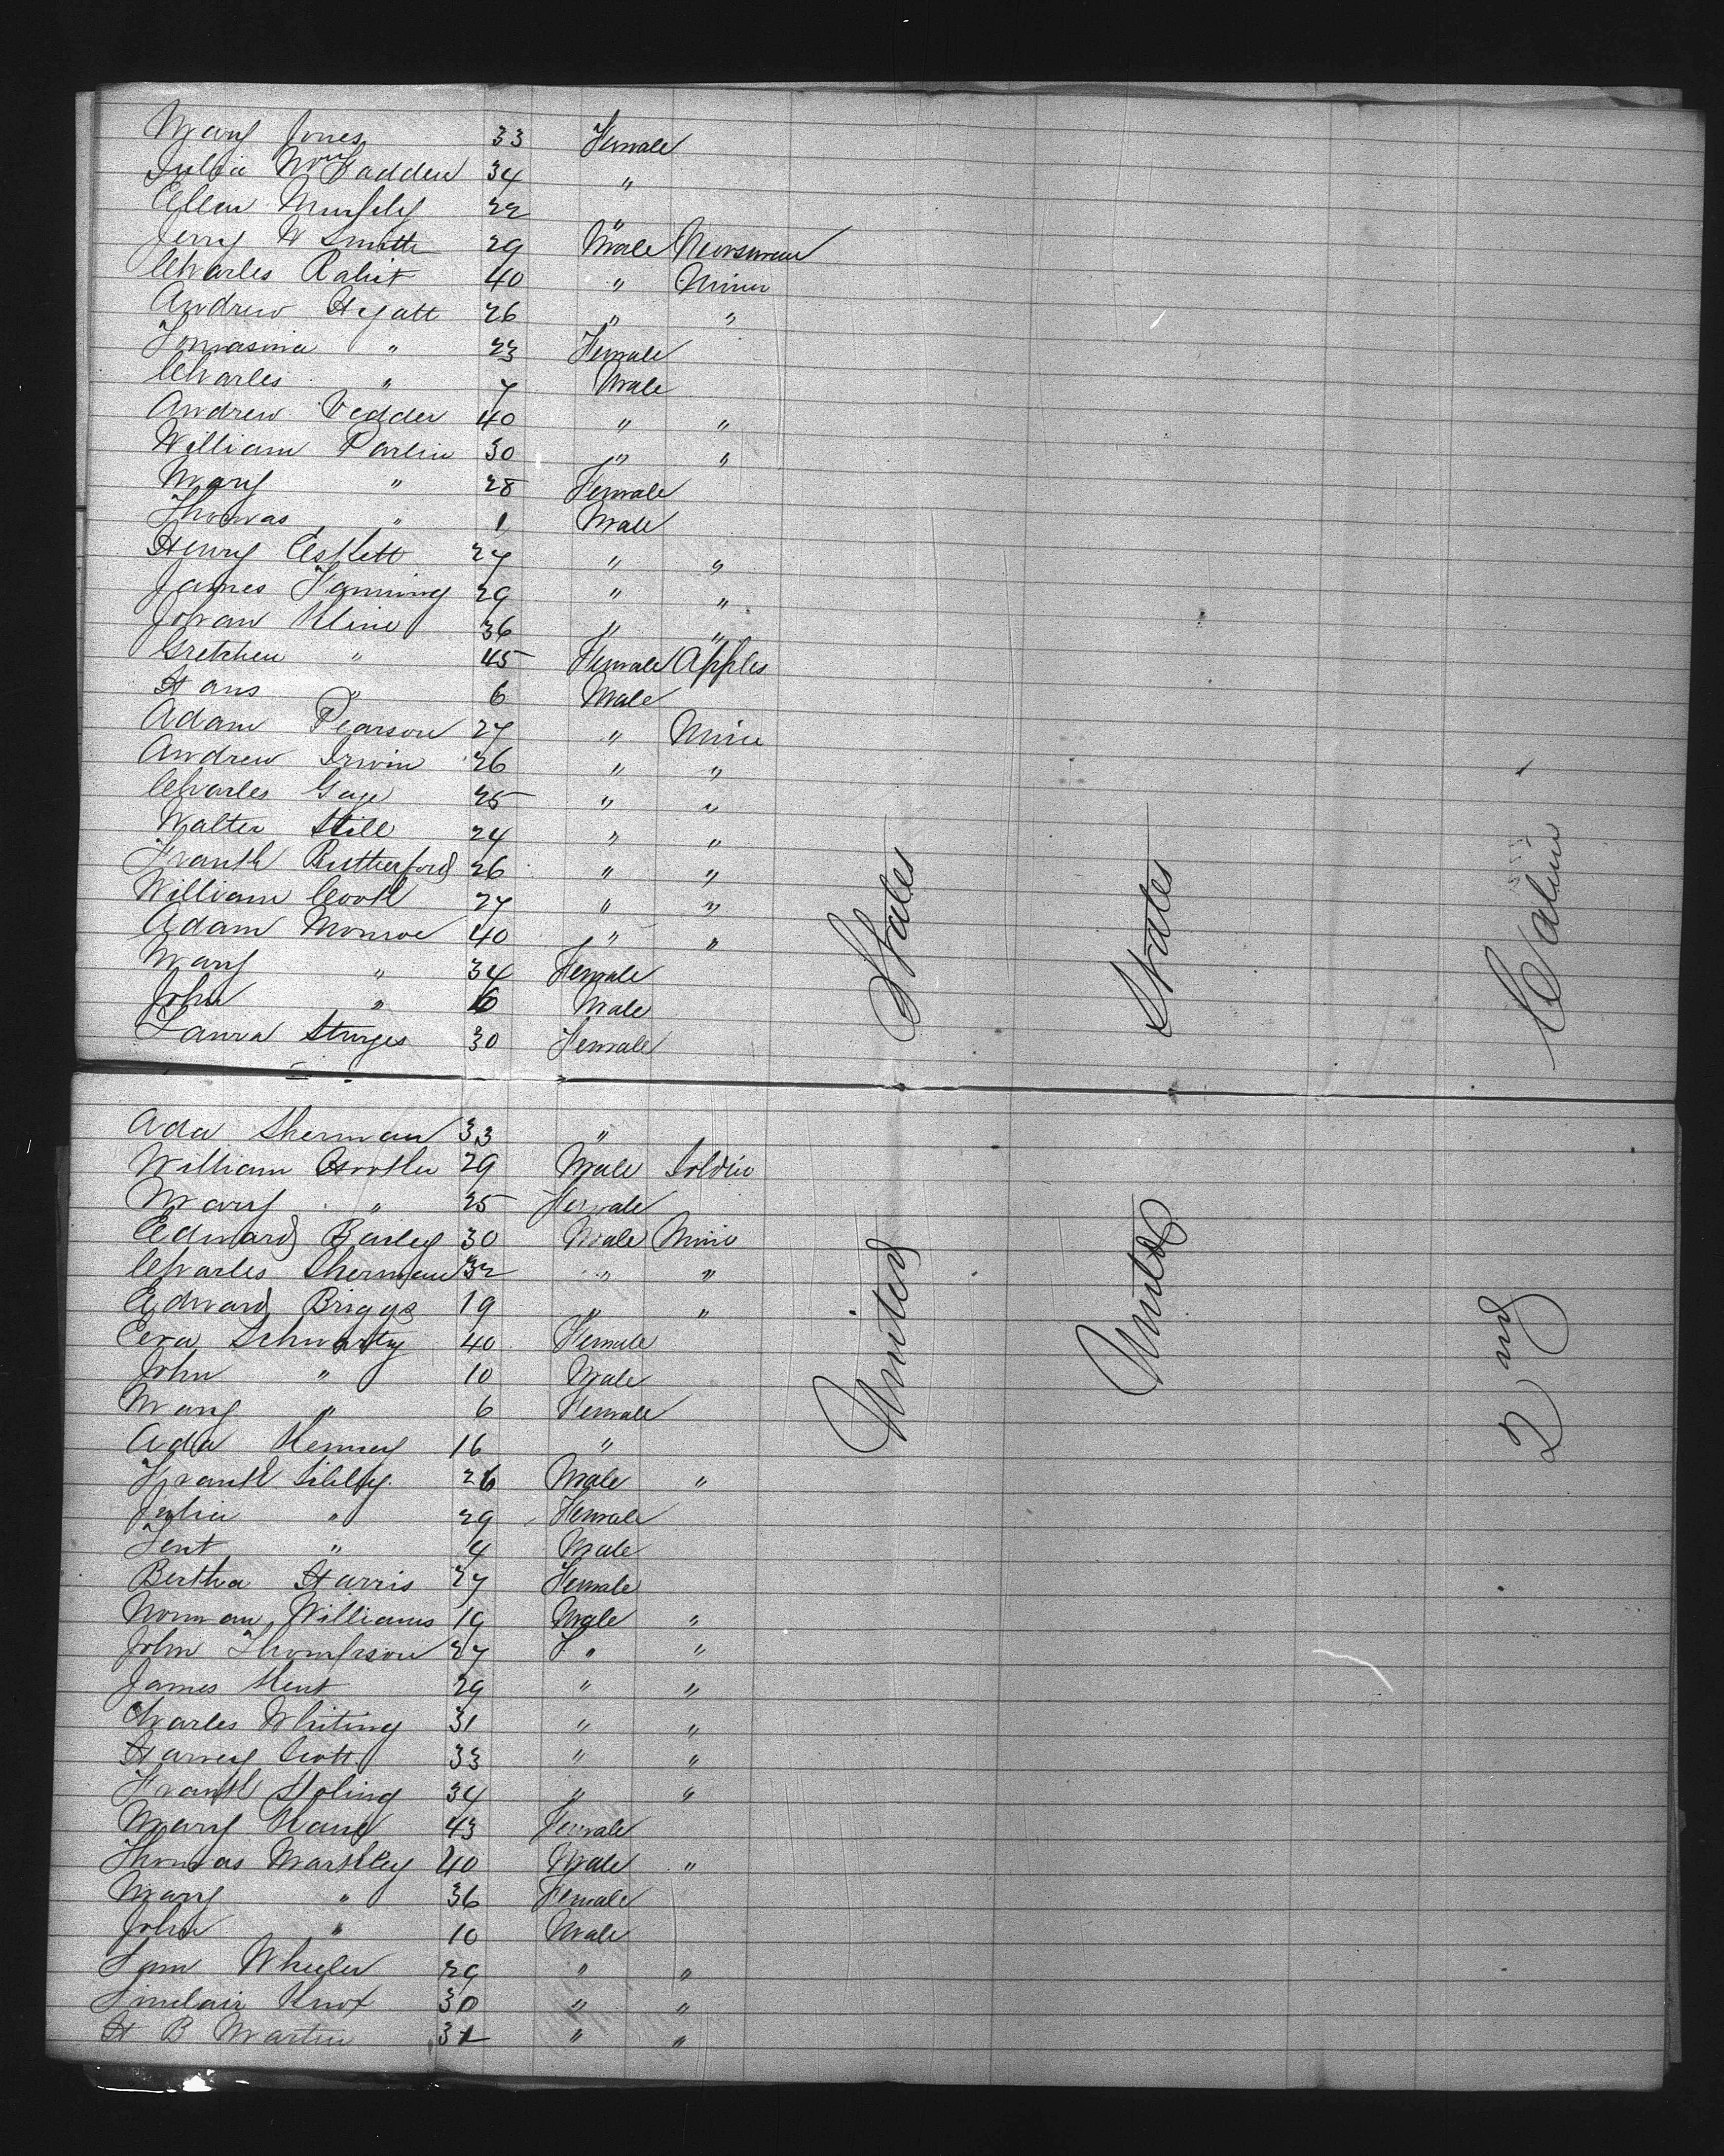 Mary Jones 33 Female
Julia McFadden 34 "
Ellen Murphy 22 "
Jerry W Smith 29 Male
Charles Rabit 40 " Miner
Andrew Hyatt 26 " "
Tomasina " 23 Female
Charles " 7 Male
Andrew Vedder 40 " "
William Parlin 30 " "
Mary " 28 Female
Thomas " 1 Male
Henry Eskett 27 " "
James Fanning 29 " "
Johan Kline 36 " "
Gretchen " 45 Female Apples
Hans " 6 Male
Adam Pearson 27 " Mine
Andrew Irwin 26 " "
Charles Gage 25 " "
Walter Hill 24 " "
Frank Rutherford 26 " "
William Cook 27 " "
Adam Monroe 40 " "
Mary " 34 Female
John " 10 Male
Laura Sturges 30 Female
Ada Sherman 33 "
William 29 Male Soldier
Mary " 25 Female
Edward Bailey 30 Male Mine
Charles Sherman 32 " "
Edward Briggs 19 " "
Eva Schwartz 40 Female
John " 10 Male
Mary " 6 Female
Ada Kenney 16 "
Frank Sibley 26 Male "
Julia " 29 Female
" 4 Male
Bertha Harris 27 Female
Norman Williams 19 Male "
John Thompson 27 " "
James Kent 29 " "
Charles Whiting 31 " "
Harvey Scott 33 " "
Frank Holing 34 " "
Mary Kane 43 Female
Thomas Markley 40 Male "
Mary " 36 Female
John " 10 Male
Sam Wheeler 29 " "
Sinclair Knox 30 " "
H B Martin 31 " "
United States
United States
2 and Calmi